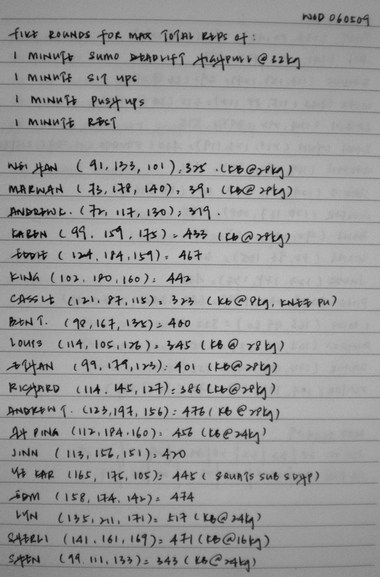 WOD 060509
FIVE ROUNDS FOR MAX TOTAL REPS OF:
1 MINUTE SUMO DEADLIFT HIGHPULL @ 32kg
1 MINUTE SIT UPS
1 MINUTE PUSH UPS
1 MINUTE REST
WEI HAN (91, 133, 101): 325 (KB@28kg)
MARWAN (73, 178, 140): 391 (KB@28kg)
ANDREW L. (72, 117, 130): 319.
KAREN (99, 159, 175) = 433 (KB@28kg)
EDDIE (124, 184, 159) = 467
KING (102, 180, 160) = 442
CASSIE (121, 87, 115) = 323 (KB@8kg, KNEE PU)
BEN T. (98, 167, 135) = 400
LOUIS (114, 105, 126) = 345 (KB@28kg)
ETHAN (99, 179, 123) = 401 (KB@28kg)
RICHARD (114, 145, 127) = 386 (KB@28kg)
ANDREW T. (123, 197, 156) = 476 (KB@28kg)
AH PING (112, 184, 160) = 456 (KB@24kg)
JINN (113, 156, 151) = 420
YE KAR (165, 175, 105) = 445 (SQUATS SUB SDHP)
SAM (158, 174, 142) = 474
LYN (135, 211, 171) = 517 (KB@24kg)
SHERLI (141, 161, 169) = 471 (KB@16kg)
SHEN (99, 111, 133) = 343 (KB@24kg)